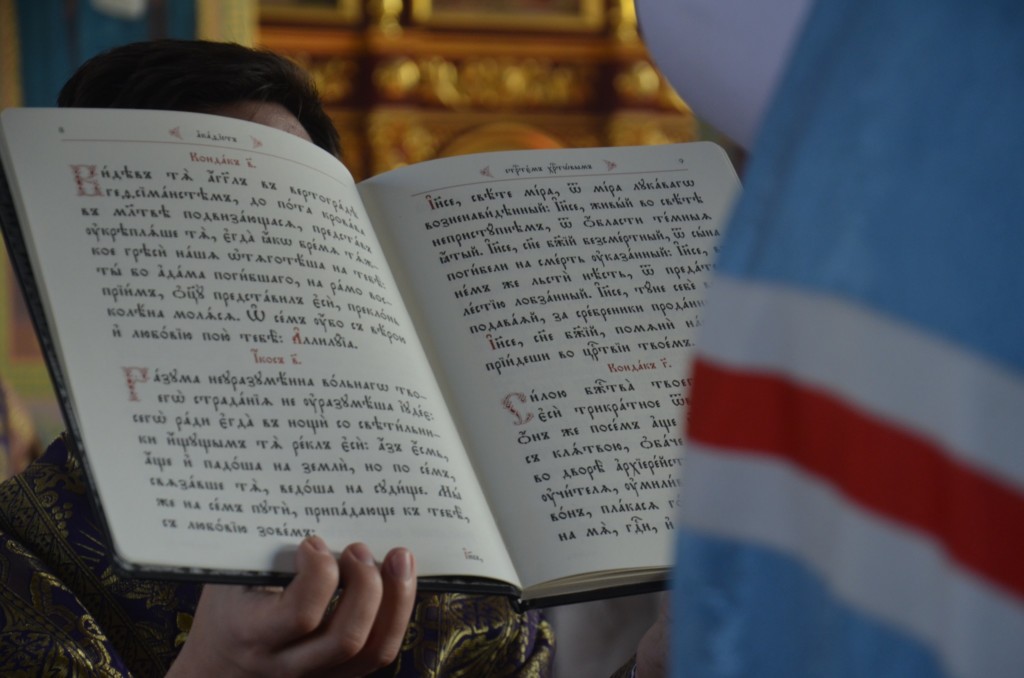 и҃
а҆ка́ѳїстъ
Конда́къ в҃.
Ви́дѣвъ тѧ̀ а҆́гг҃лъ въ вертогра́дѣ
геѳсїма́нстѣмъ, до по́та крова́ва
въ мл҃твѣ подвиза́ющасѧ, предста́въ
ᲂу҆крѣплѧ́ше тѧ̀, є҆гда̀ ꙗ҆́кѡ бре́мѧ тѧ́ж-
кое грѣсѝ на́шѧ ѡ҆тѧготѣ́ша на тебѣ̀:
ты́ бо а҆да́ма поги́бшаго, на ра́мо вос-
прїи́мъ, ѻ҆ц҃ꙋ̀ предста́вилъ є҆сѝ, прекло́нь
колѣ̑на молѧ́сѧ. Ѡ҆ се́мъ ᲂу҆́бѡ съ вѣ́рою
и҆ любо́вїю пою̀ тебѣ̀: А҆ллилꙋ́їа.
І҆́косъ в҃.
Ра́зꙋма неꙋразꙋмѣ́нна во́льнагѡ тво-
егѡ̀ страда́нїѧ не ᲂу҆разꙋмѣ́ша і҆ꙋдє́є:
сегѡ̀ ра́ди є҆гда̀ въ нощѝ со свѣти̑льни-
ки и҆́щꙋщымъ тѧ̀ ре́клъ є҆сѝ: а҆́зъ є҆́смь,
а҆́ще и҆ падо́ша на землѝ, но по се́мъ,
свѧза́вше тѧ̀, ведо́ша на сꙋди́ще. Мы́
же на се́мъ пꙋтѝ, припа́дающе къ тебѣ̀,
съ любо́вїю зове́мъ:
І҆и҃се,
ѳ҃
стрⷭ҇тє́мъ хрⷭ҇тѡ́вымъ
І҆и҃се, свѣ́те мі́ра, ѿ мі́ра лꙋка́вагѡ
возненави́дѣнный: І҆и҃се, живы́й во свѣ́тѣ
непристꙋ́пнѣмъ, ѿ ѻ҆́бласти те́мныѧ
ꙗ҆́тый. І҆и҃се, сн҃е бж҃їй безсме́ртный, ѿ сы́на
поги́бели на сме́рть ᲂу҆ка́занный: І҆и҃се, въ
не́мъ же льстѝ нѣ́сть, ѿ преда́т
ле́стїю лобза́нный. І҆и҃се, тꙋ́не себѐ
подава́ѧй, за сре́бренники про́дан
І҆и҃се, сн҃е бж҃їй, помѧнѝ на
прїи́деши во црⷭ҇твїи твое́мъ.
Конда́къ г҃.
Си́лою бж҃тва̀ твоегѡ̀
є҆сѝ трикра́тное ѿ
ѻ҆́нъ же посе́мъ а҆́ще
съ клѧ́твою, ѻ҆ба́че
во дворѣ̀ а҆рхїере́йст
ᲂу҆чи́телѧ, ᲂу҆мили́
во́нъ, пла́касѧ го
на мѧ̀, гд҇и, и҆